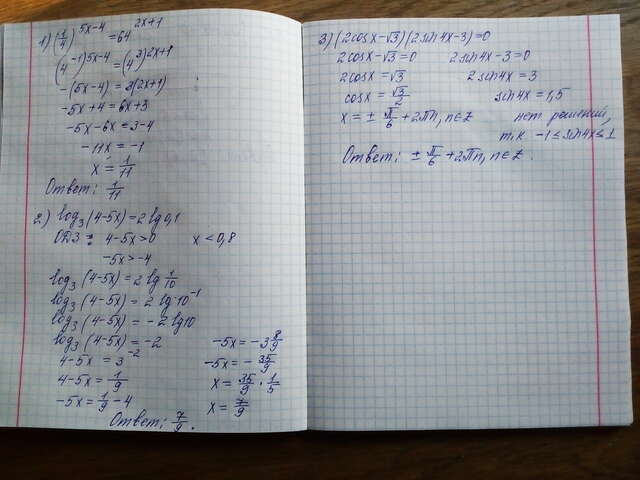 1) (1/4)^(5x-4) = 64^(2x+1)
(4^-1)^(5x-4) = (4^3)^(2x+1)
-(5x-4) = 3(2x+1)
-5x+4 = 6x+3
-5x-6x = 3-4
-11x = -1
x = 1/11
Ответ: 1/11
2) log₃(4-5x) = 2lg0,1
ОДЗ: 4-5x>0 x<0,8
-5x>-4
log₃(4-5x) = 2lg 1/10
log₃(4-5x) = 2lg10^-1
log₃(4-5x) = -2lg10
log₃(4-5x) = -2
4-5x = 3^-2
4-5x = 1/9
-5x = 1/9 - 4
-5x = -3 8/9
-5x = -35/9
x = 35/9 · 1/5
x = 7/9
Ответ: 7/9.
3) (2cosx-√3)(2sin4x-3)=0
2cosx-√3=0 2sin4x-3=0
2cosx=√3 2sin4x=3
cosx=√3/2 sin4x=1,5
x=±π/6+2πn, n∈Z нет решений,
т.к. -1≤sin4x≤1
Ответ: ±π/6+2πn, n∈Z.